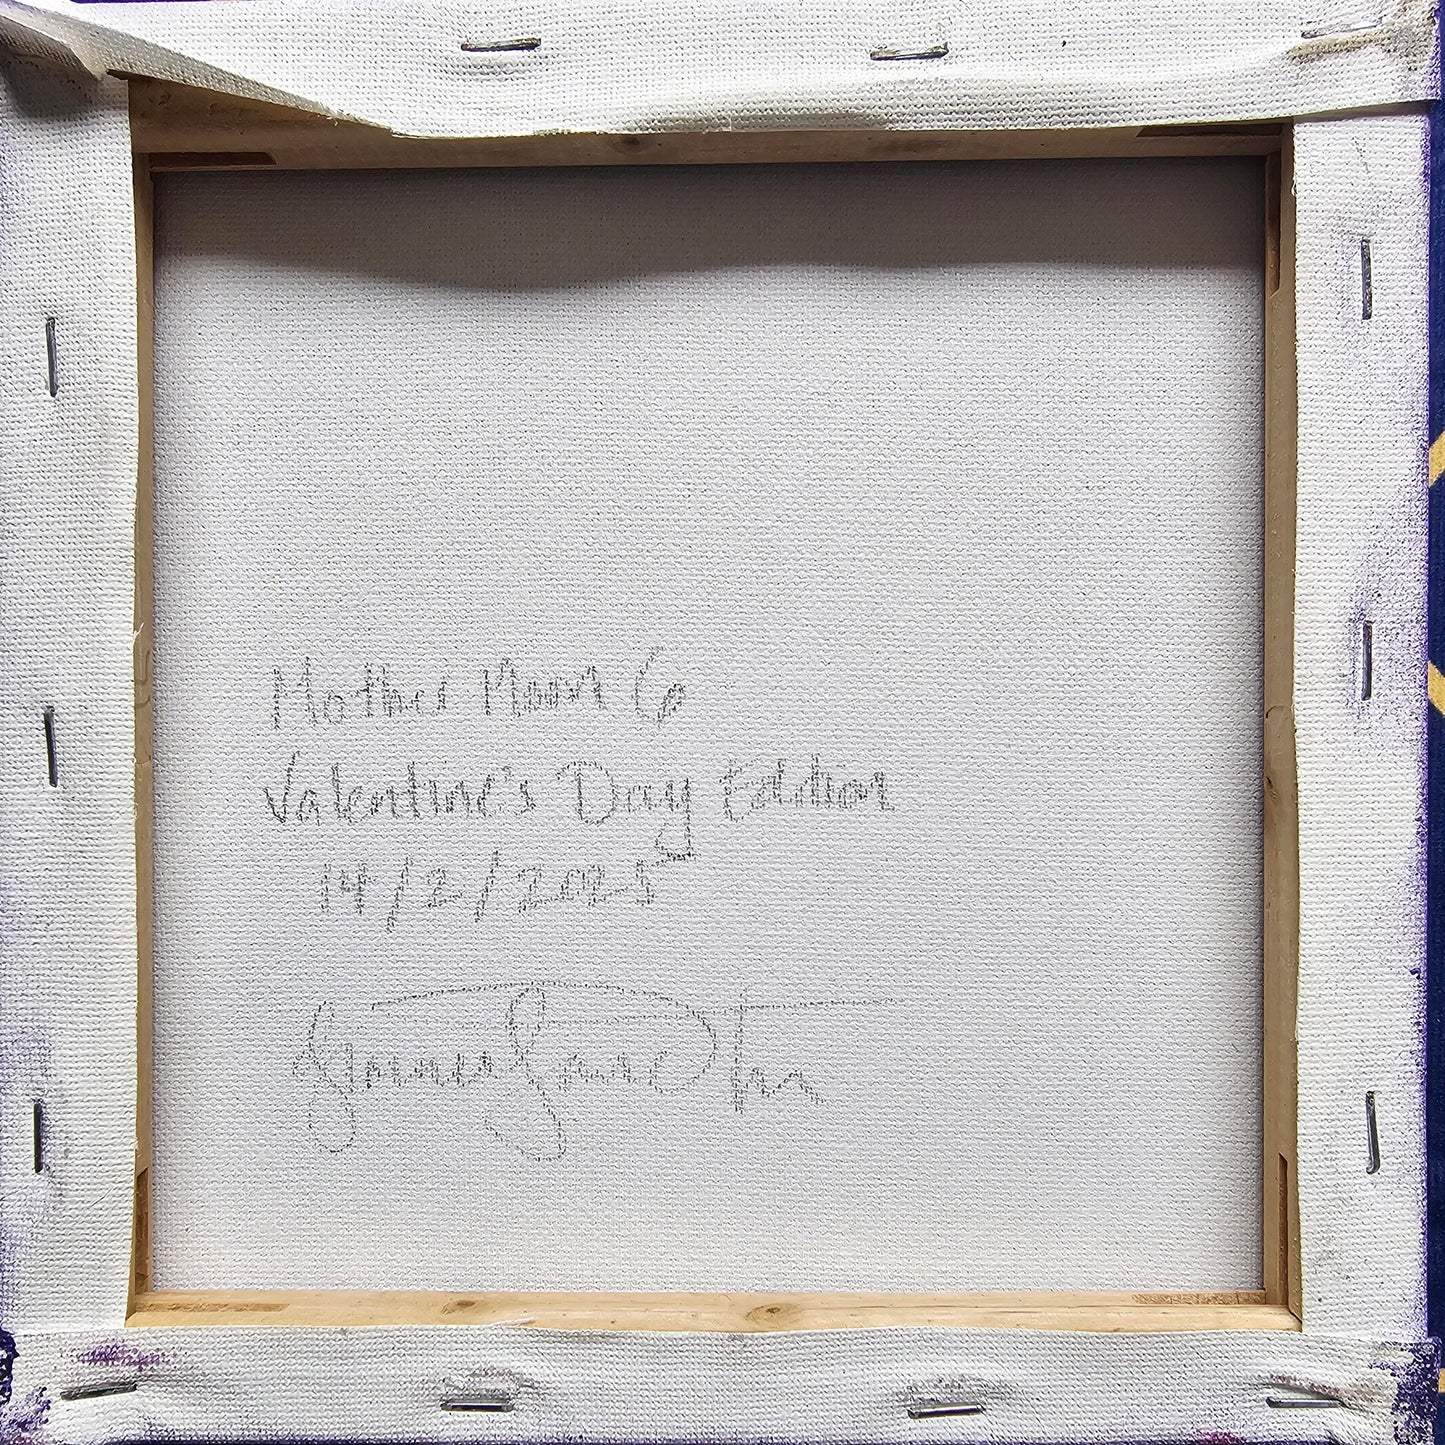 Mother Moon 6
Valentine's Day Edition
14/2/2025